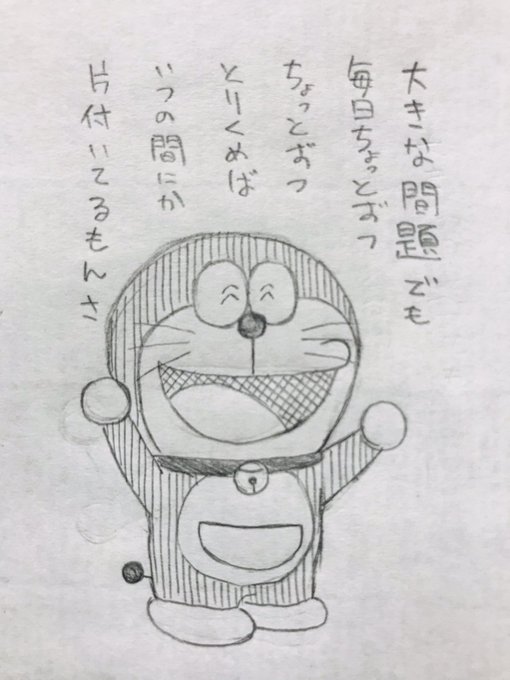 大きな問題でも
毎日ちょっとずつ
ちょっとずつ
とりくめば
いつの間にか
片付いてるもんさ